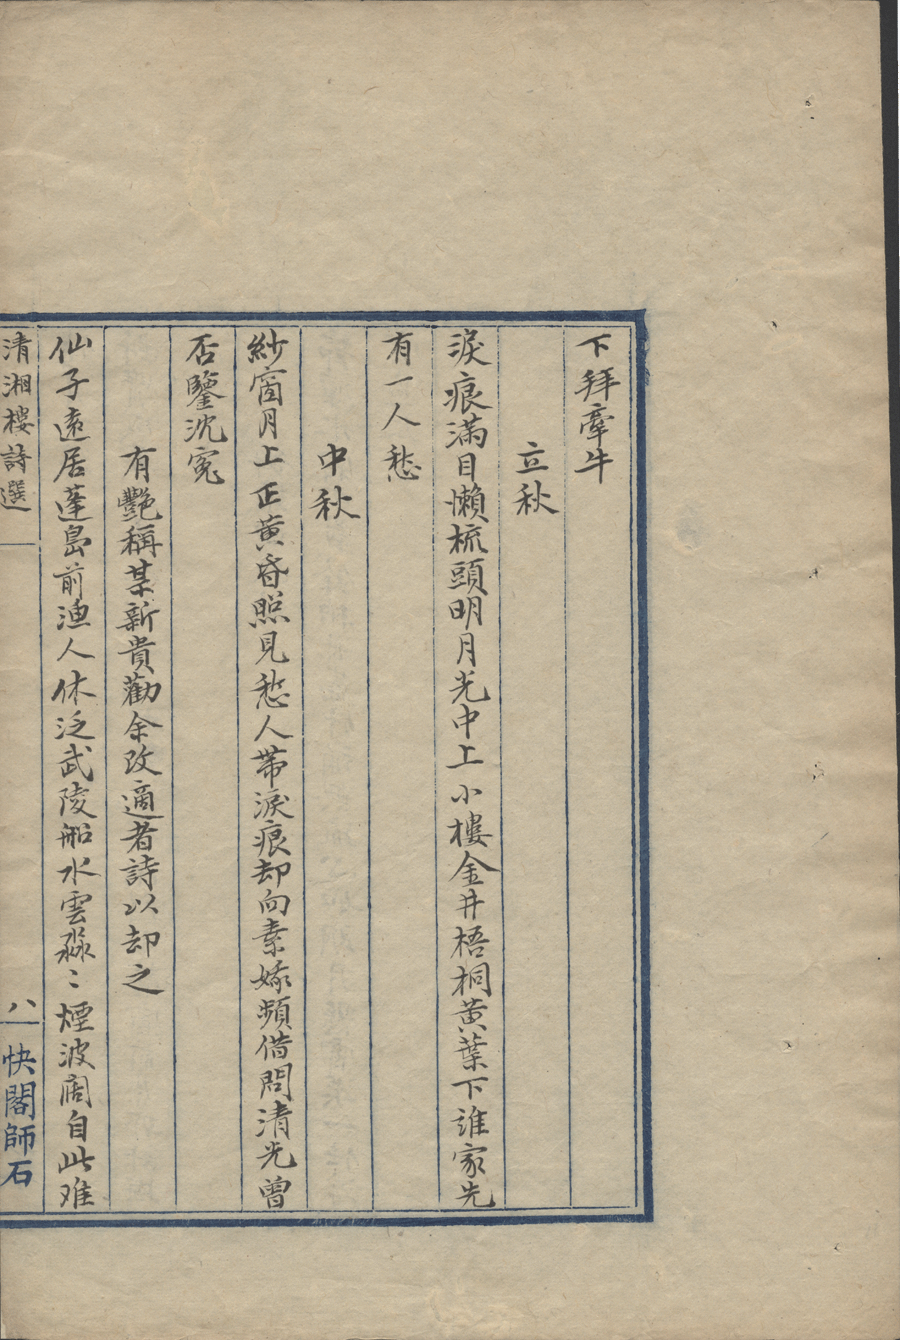 下拜牽牛
立秋
淚痕滿目懶梳頭明月光中上小樓金井梧桐黃葉下誰家先
有一人愁
中秋
紗窗月上正黃昏照見愁人帶淚痕却向素娥頻借問清光曾
否鑒沈冤
有艷稱某新貴勸余改適者詩以却之
仙子遠居蓬島前漁人休泛武陵船水雲淼〻煙波闊自此难
清湘樓詩選
八
快閣師石